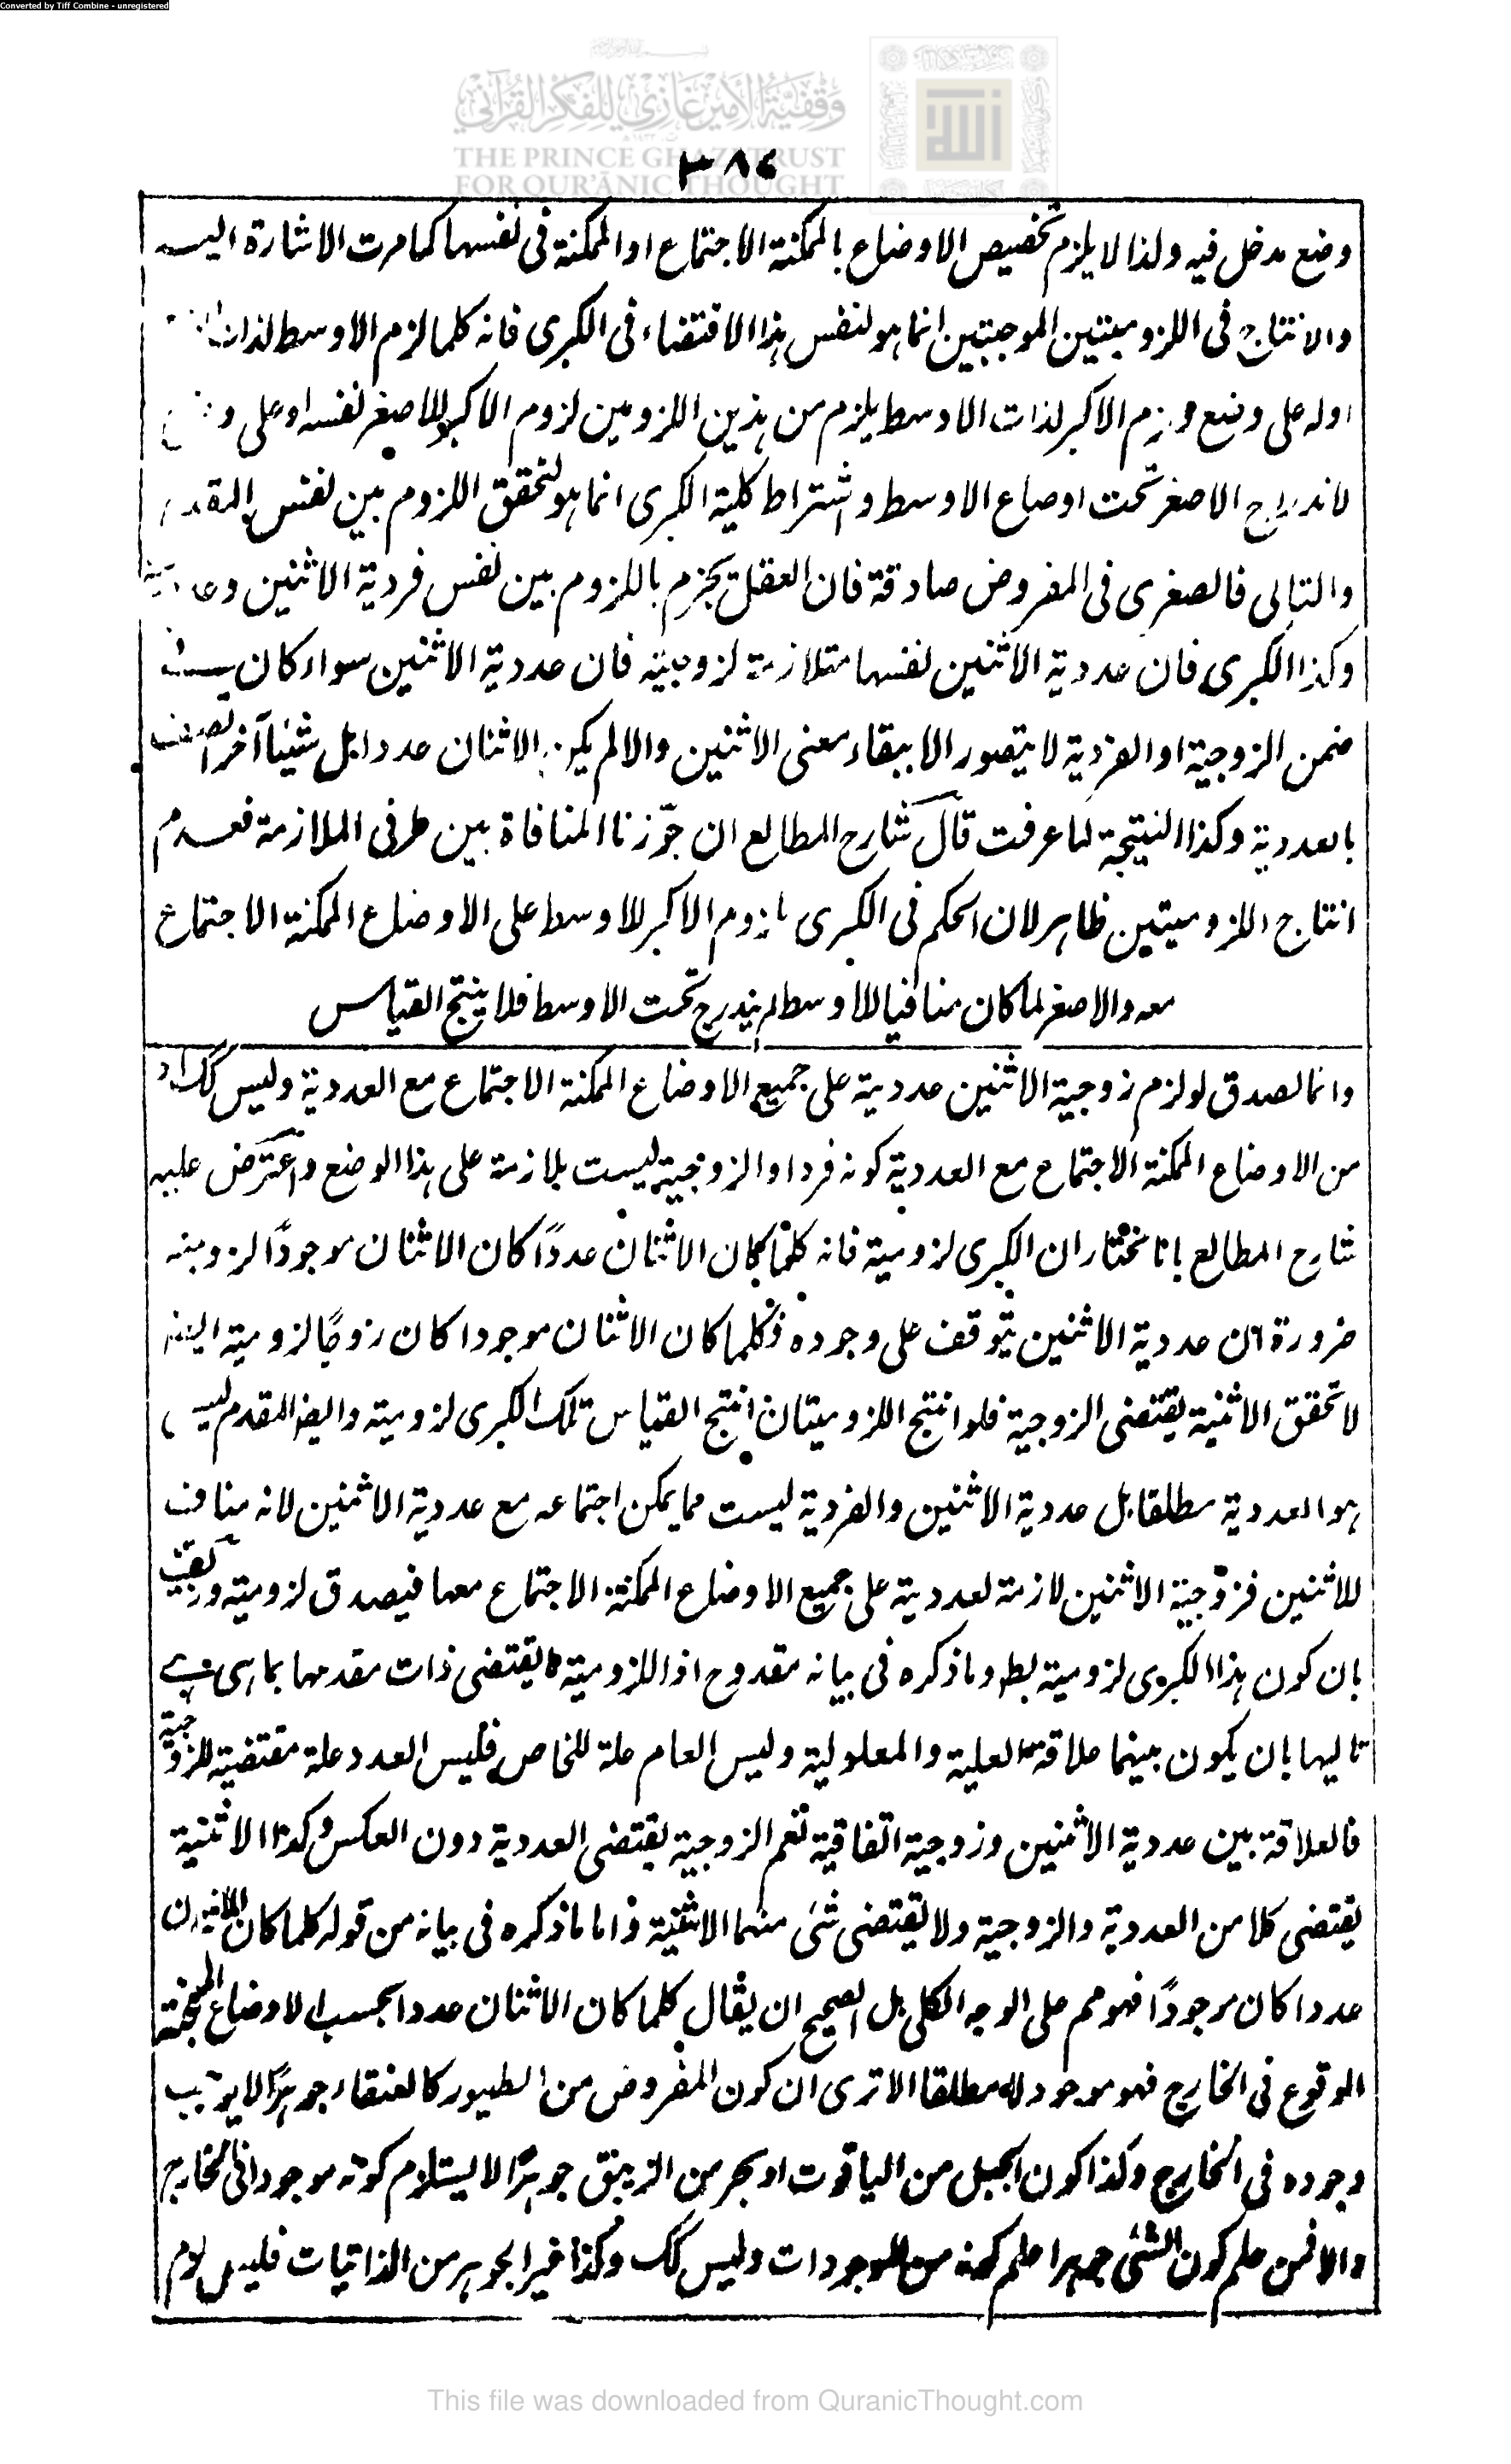 Converted by Tiff Combine - unregistered
وقفية الأمير غازي للفكر القرآني
THE PRINCE GHAZI TRUST
FOR QUR'ĀNIC THOUGHT
٣٨٤
وضع مدخل فيه ولذا لا يلزم تخصيص الاوضاع بالممكنة الاجتماع او الممكنة فى نفسها كما مرت الاشارة اليه
والانتاج فى اللزوميتين الموجبتين انما هو لنفس هذا الاقتضاء فى الكبرى فانه كلما لزم الاوسط لذات
اوله على وضع ولزم الاكبر لذات الاوسط يلزم من هذين اللزومين لزوم الاكبر للاصغر نفسه او على
لاندراج الاصغر تحت اوضاع الاوسط واشتراط كلية الكبرى انما هو لتحقق اللزوم بين نفس المقدم
والتالى فالصغرى فى المفروض صادقة فان العقل يجزم باللزوم بين نفس فردية الاثنين
وكذا الكبرى فان عددية الاثنين نفسها متلازمة لزوجيته فان عددية الاثنين سواء كان
ضمن الزوجية او الفردية لا يتصور الا ببقاء معنى الاثنين والا لم يكن الاثنان عددا بل شيئا آخر
بالعددية وكذا النتيجة لما عرفت قال شارح المطالع ان جوّزنا المنافاة بين طرفى الملازمة فعدم
انتاج اللزوميتين ظاهر لان الحكم فى الكبرى بلزوم الاكبر للاوسط على الاوضاع الممكنة الاجتماع
معه والاصغر لما كان منافيا للاوسط لم يندرج تحت الاوسط فلا ينتج القياس
وانما لصدق لو لزم زوجية الاثنين عددية على جميع الاوضاع الممكنة الاجتماع مع العددية وليس كك اذ
من الاوضاع الممكنة الاجتماع مع العددية كونه فردا والزوجية ليست بلازمة على هذا الوضع واعترض عليه
شارح المطالع بانا نختار ان الكبرى لزومية فانه كلما كان الاثنان عددًا كان الاثنان موجودًا لزومية
ضرورة ان عددية الاثنين يتوقف على وجوده وكلما كان الاثنان موجودا كان زوجًا لزومية ايضا
لا تحقق الاثنية يقتضى الزوجية فلو انتج اللزوميتان انتج القياس تلك الكبرى لزومية وايضا المقدم ليس
هو العددية مطلقا بل عددية الاثنين والفردية ليست مما يمكن اجتماعه مع عددية الاثنين لانه مناف
للاثنين فزوجية الاثنين لازمة لعددية على جميع الاوضاع الممكنة الاجتماع معها فيصدق لزومية وتعقب
بان كون هذا الكبرى لزومية بط وما ذكره فى بيانه مقدوح اذ اللزومية ما يقتضى ذات مقدمها بما هى هى
تاليها بان يكون بينهما علاقة العلية والمعلولية وليس العام علة للخاص فليس العدد علة مقتضية للزوجية
فالعلاقة بين عددية الاثنين وزوجية اتفاقية نعم الزوجية يقتضى العددية دون العكس وكذا الاثنية
يقتضى كلا من العددية والزوجية ولا يقتضى شئ منهما الاثنية واما ما ذكره فى بيانه من قوله كلما كان الاثنان
عددا كان موجودًا فهو مم على الوجه الكلى بل الصحيح ان يقال كلما كان الاثنان عددا بحسب الاوضاع المحققة
الوقوع فى الخارج فهو موجود لا مطلقا الا ترى ان كون المفروض من الطيور كالعنقاء جوهرًا لا يوجب
وجوده فى الخارج وكذا كون الجبل من الياقوت او بحر من الزيبق جوهرًا لا يستلزم كونه موجودا فى الخارج
والا فمن علم كون الشئ جوهرا علم كونه من الموجودات وليس كك وكذا غير الجوهر من الذاتيات فليس
This file was downloaded from QuranicThought.com